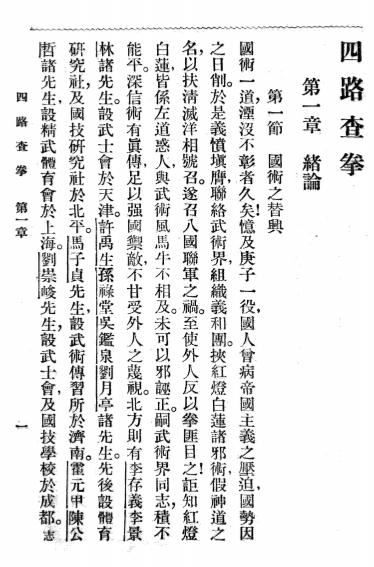 四路查拳
第一章　緒論
第一節　國術之替興
國術一道，湮沒不彰者久矣！憶及庚子一役，國人曾病帝國主義之壓迫，國勢因
之日削。於是義憤塡膺，聯絡武術界，組織義和團。挾紅燈白蓮諸邪術，假神道之
名，以扶淸滅洋相號召。遂召八國聯軍之禍。至使外人反以拳匪目之！詎知紅燈
白蓮，皆係左道惑人，與武術風馬牛不相及。未可以邪誣正。嗣武術界同志，積不
能平。深信術有眞傳，足以强國禦敵，不甘受外人之蔑視。北方則有李存義李景
林諸先生。設武士會於天津。許禹生孫祿堂吳鑑泉劉月亭諸先生。先後設體育
硏究社，及國技硏究社於北平。馬子貞先生，設武術傳習所於濟南。霍元甲陳公
哲諸先生，設精武體育會於上海。劉崇峻先生，設武士會，及國技學校於成都。志
四路查拳　第一章
一